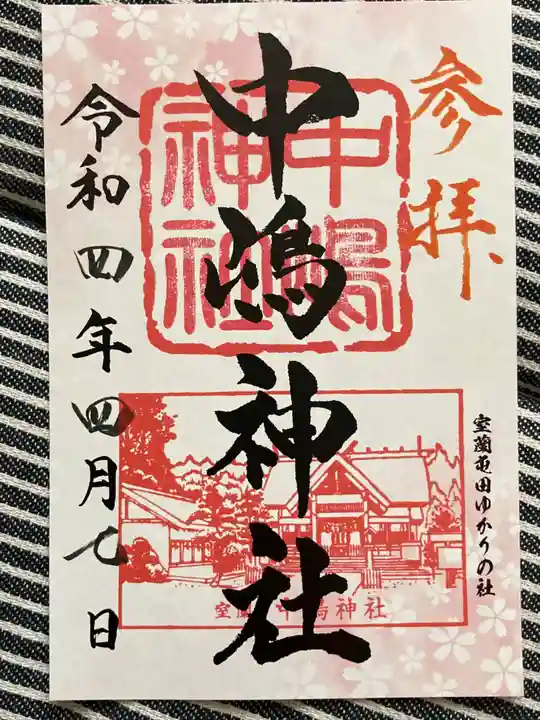 参拝
中嶋神社
中嶋神社
室蘭屯田ゆかりの社
令和四年四月七日
室蘭 中嶋神社